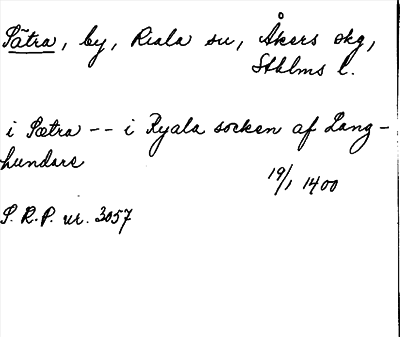 Sätra, by, Riala sn, Åkers skg,
Sthlms l.
i Sætra -- i Ryala socken af Lang-
hundare
19/1 1400
S. R. P. nr. 3057